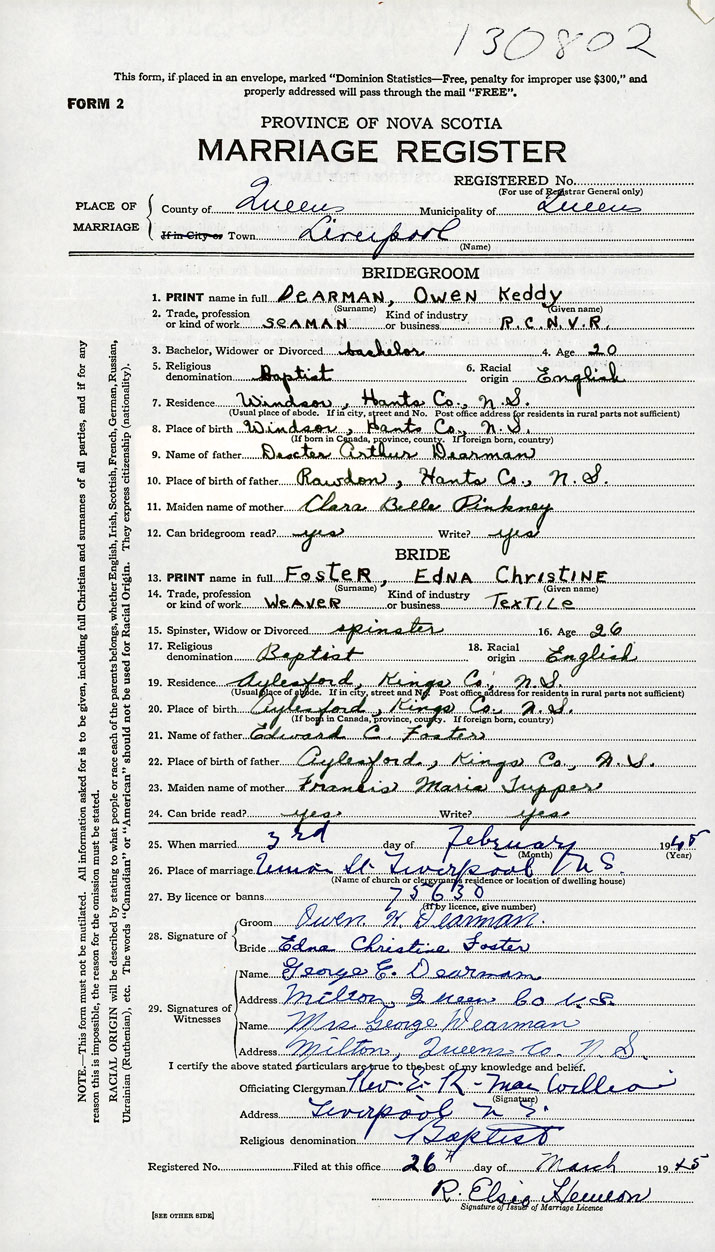 130802
This form, if placed in an envelope, marked “Dominion Statistics—Free, penalty for improper use $300,” and
properly addressed will pass through the mail “FREE”.
FORM 2
PROVINCE OF NOVA SCOTIA
MARRIAGE REGISTER
REGISTERED No.
(For use of Registrar General only)
PLACE OF MARRIAGE
County of Queens Municipality of Queens
If in City or Town Liverpool
(Name)
BRIDEGROOM
1. PRINT name in full DEARMAN, OWEN Keddy
(Surname) (Given name)
2. Trade, profession or kind of work SEAMAN Kind of industry or business R.C.N.V.R.
3. Bachelor, Widower or Divorced bachelor 4. Age 20
5. Religious denomination Baptist 6. Racial origin English
7. Residence Windsor, Hants Co., N.S.
(Usual place of abode. If in city, street and No. Post office address for residents in rural parts not sufficient)
8. Place of birth Windsor, Hants Co., N.S.
(If born in Canada, province, county. If foreign born, country)
9. Name of father Dexter Arthur Dearman
10. Place of birth of father Rawdon, Hants Co., N.S.
11. Maiden name of mother Clara Belle Pinkney
12. Can bridegroom read? yes Write? yes
BRIDE
13. PRINT name in full FOSTER, EDNA CHRISTINE
(Surname) (Given name)
14. Trade, profession or kind of work WEAVER Kind of industry or business TEXTILE
15. Spinster, Widow or Divorced spinster 16. Age 26
17. Religious denomination Baptist 18. Racial origin English
19. Residence Aylesford, Kings Co., N.S.
(Usual place of abode. If in city, street and No. Post office address for residents in rural parts not sufficient)
20. Place of birth Aylesford, Kings Co., N.S.
(If born in Canada, province, county. If foreign born, country)
21. Name of father Edward C. Foster
22. Place of birth of father Aylesford, Kings Co., N.S.
23. Maiden name of mother Francis Maria Tupper
24. Can bride read? yes Write? yes
25. When married 3rd day of February 1945
(Month) (Year)
26. Place of marriage Union St Liverpool N.S.
(Name of church or clergyman's residence or location of dwelling house)
27. By licence or banns 75630
(If by licence, give number)
28. Signature of
Groom Owen K Dearman.
Bride Edna Christine Foster
29. Signatures of Witnesses
Name George E. Dearman
Address Milton, Queen Co N.S.
Name Mrs George Dearman
Address Milton, Queens Co. N.S.
I certify the above stated particulars are true to the best of my knowledge and belief.
Officiating Clergyman Rev. E. R.
(Signature)
Address Liverpool N.S.
Religious denomination Baptist
Registered No. Filed at this office 26th day of March 1945
R. Elsie
Signature of Issuer of Marriage Licence
[SEE OTHER SIDE]
NOTE.—This form must not be mutilated. All information asked for is to be given, including full Christian and surnames of all parties, and if for any
reason this is impossible, the reason for the omission must be stated.
RACIAL ORIGIN will be described by stating to what people or race each of the parents belongs, whether English, Irish, Scottish, French, German, Russian,
Ukrainian (Ruthenian), etc. The words “Canadian” or “American” should not be used for Racial Origin. They express citizenship (nationality).